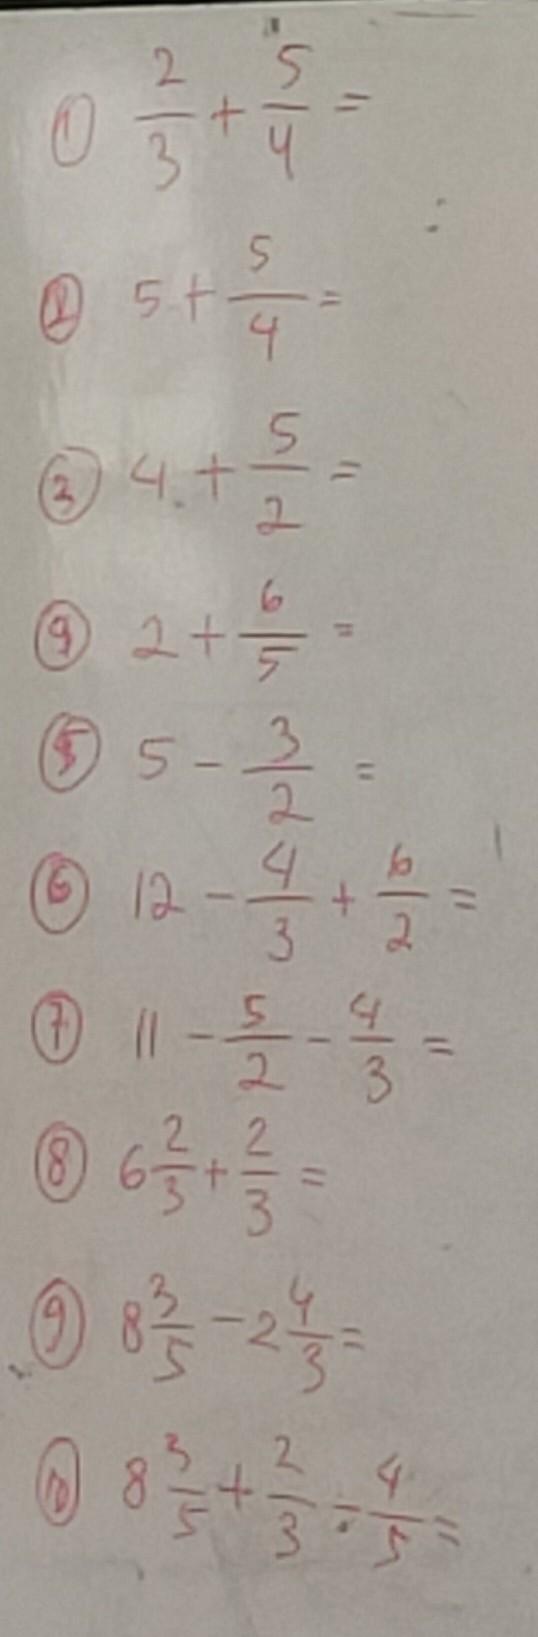 ① 2/3 + 5/4 =
② 5 + 5/4 =
③ 4 + 5/2 =
④ 2 + 6/5 =
⑤ 5 - 3/2 =
⑥ 12 - 4/3 + 6/2 =
⑦ 11 - 5/2 - 4/3 =
⑧ 6 2/3 + 2/3 =
⑨ 8 3/5 - 2 4/3 =
⑩ 8 3/5 + 2/3 - 4/5 =